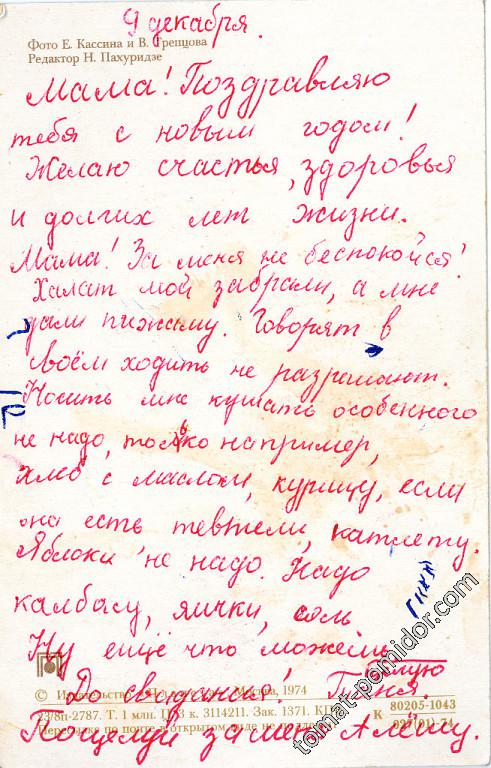 9 декабря.
Фото Е. Кассина и В. Грепцова
Редактор Н. Пахуридзе
Мама! Поздравляю
тебя с новым годом!
Желаю счастья, здоровья
и долгих лет жизни.
Мама! За меня не беспокойся!
Халат мой забрали, а мне
дали пижаму. Говорят в
своём ходить не разрешают.
Носить мне кушать особенного
не надо, только например,
хлеб с маслом, курицу, если
она есть тевтели, катлету.
Яблоки не надо. Надо
калбасу, яички, соль
Ну ещё что можешь
Целую
До свидания! Геня.
© Издательство Москва, 1974
23/8п-2787. Т. 1 млн. 3114211. Зак. 1371.
К 80205-1043
097(01)-74
Поцелуй за меня Алёшу.
tomat-pomidor.com